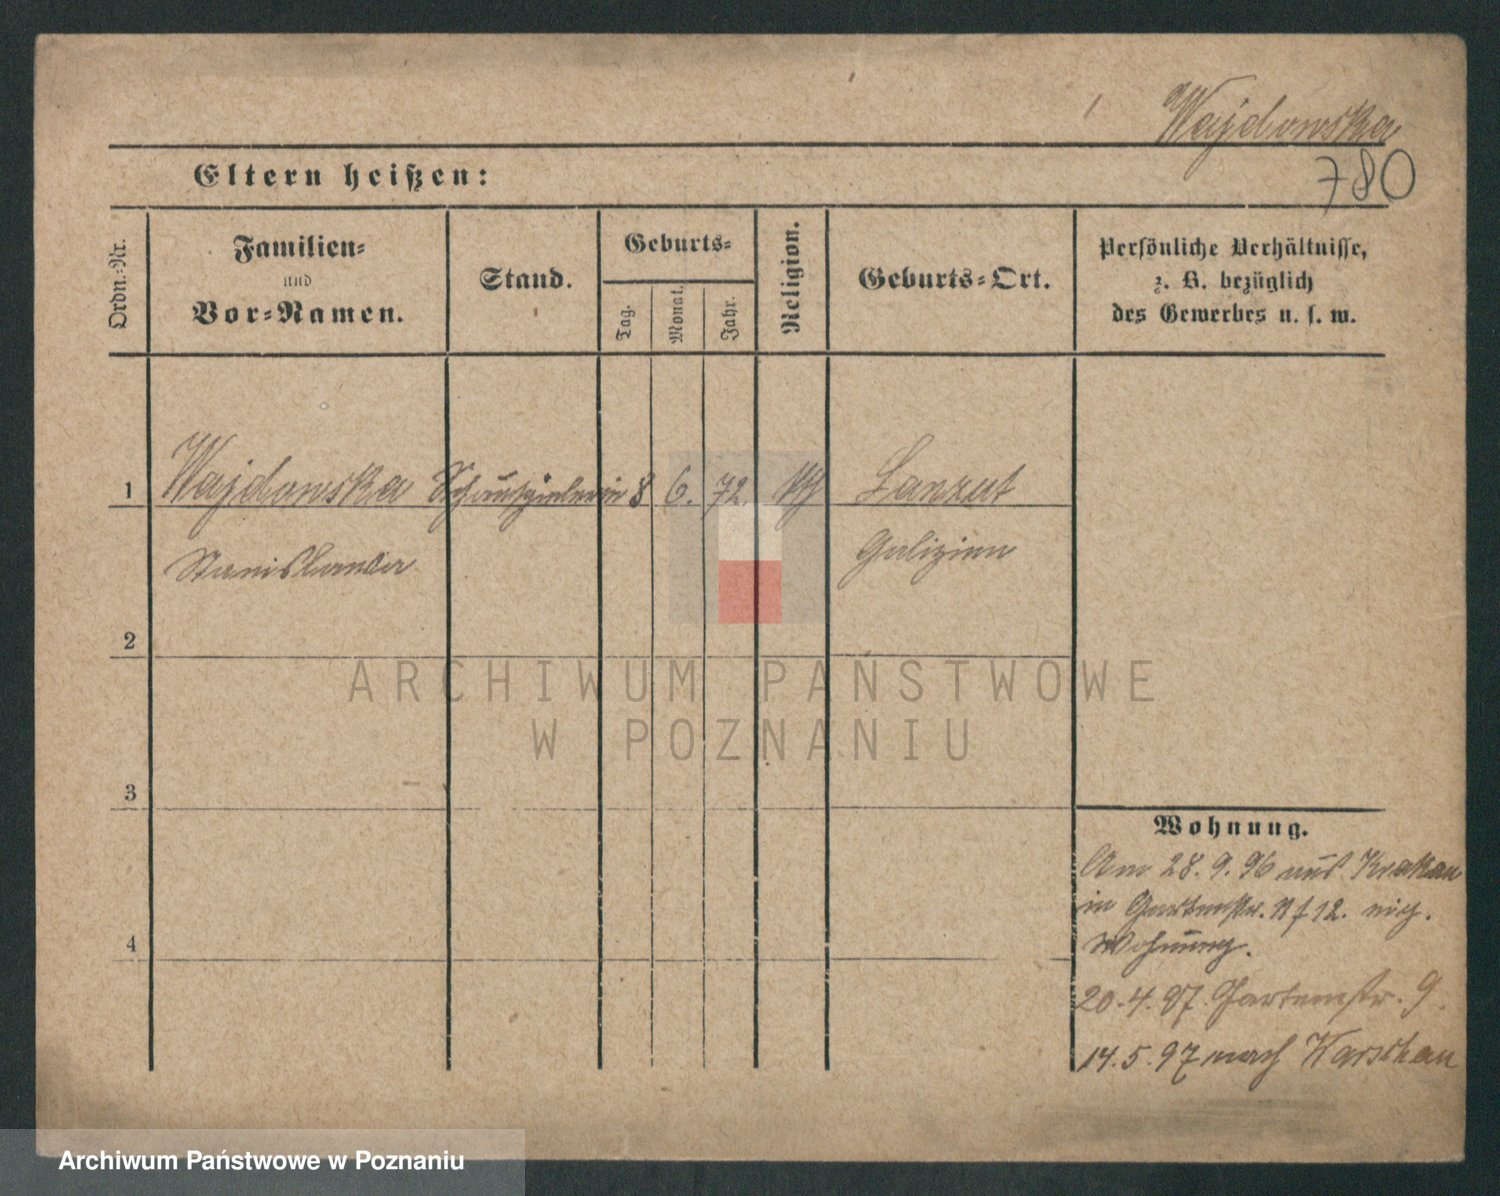 Wajdowska
780
Eltern heißen:
Ordn.-Nr.
Familien-
und
Vor-Namen.
Stand.
Geburts-
Tag.
Monat.
Jahr.
Religion.
Geburts-Ort.
Persönliche Verhältnisse,
z. B. bezüglich
des Gewerbes u. s. w.
1 Wajdowska Schauspielerin 8 6. 72. Lanzut
Stanislawa Galizien
2
3
4
Wohnung.
Am 28.9.96 aus Krakau
in Gartenstr. 12. eig.
Wohnung.
20.4.97 Gartenstr. 9.
14.5.97 nach Warschau
ARCHIWUM PAŃSTWOWE
W POZNANIU
Archiwum Państwowe w Poznaniu